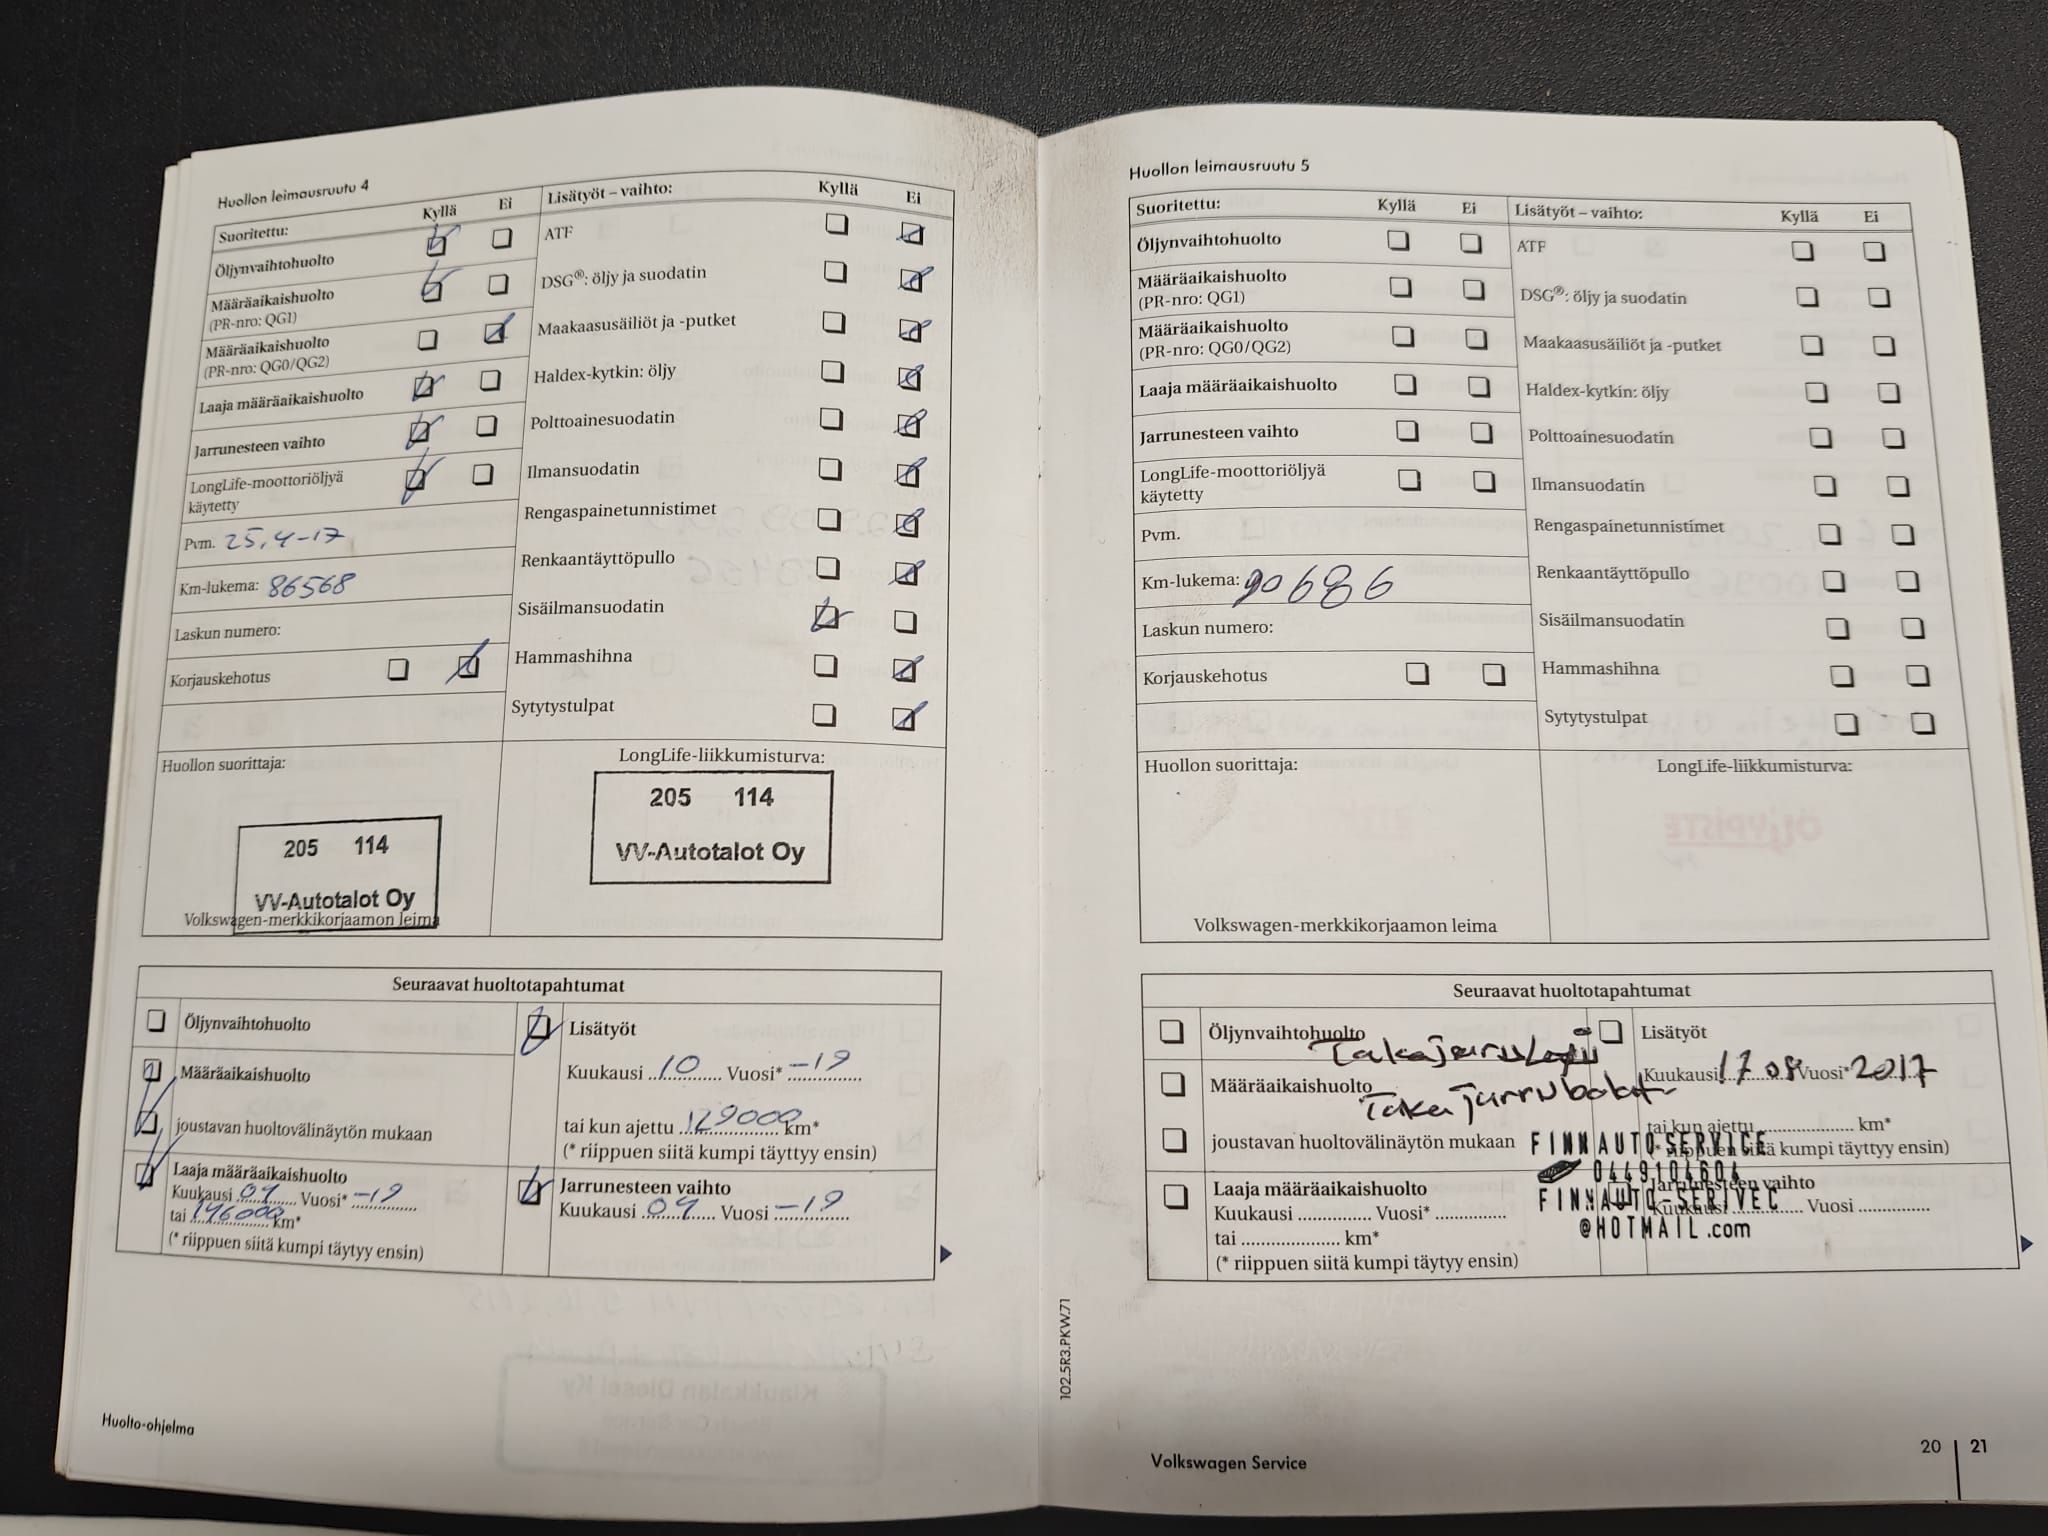 Huollon leimausruutu 4
Suoritettu: Kyllä Ei
Öljynvaihtohuolto
Määräaikaishuolto
(PR-nro: QG1)
Määräaikaishuolto
(PR-nro: QG0/QG2)
Laaja määräaikaishuolto
Jarrunesteen vaihto
LongLife-moottoriöljyä
käytetty
Pvm. 25.4-17
Km-lukema: 86568
Laskun numero:
Korjauskehotus
Lisätyöt – vaihto: Kyllä Ei
ATF
DSG®: öljy ja suodatin
Maakaasusäiliöt ja -putket
Haldex-kytkin: öljy
Polttoainesuodatin
Ilmansuodatin
Rengaspainetunnistimet
Renkaantäyttöpullo
Sisäilmansuodatin
Hammashihna
Sytytystulpat
Huollon suorittaja:
205 114
VV-Autotalot Oy
Volkswagen-merkkikorjaamon leima
LongLife-liikkumisturva:
205 114
VV-Autotalot Oy
Seuraavat huoltotapahtumat
Öljynvaihtohuolto
Määräaikaishuolto
joustavan huoltovälinäytön mukaan
Laaja määräaikaishuolto
Kuukausi 04 Vuosi* -19
tai 146000 km*
(* riippuen siitä kumpi täytyy ensin)
Lisätyöt
Kuukausi 10 Vuosi* -19
tai kun ajettu 129000 km*
(* riippuen siitä kumpi täyttyy ensin)
Jarrunesteen vaihto
Kuukausi 04 Vuosi -19
Huolto-ohjelma
Huollon leimausruutu 5
Suoritettu: Kyllä Ei
Öljynvaihtohuolto
Määräaikaishuolto
(PR-nro: QG1)
Määräaikaishuolto
(PR-nro: QG0/QG2)
Laaja määräaikaishuolto
Jarrunesteen vaihto
LongLife-moottoriöljyä
käytetty
Pvm.
Km-lukema: 90686
Laskun numero:
Korjauskehotus
Lisätyöt – vaihto: Kyllä Ei
ATF
DSG®: öljy ja suodatin
Maakaasusäiliöt ja -putket
Haldex-kytkin: öljy
Polttoainesuodatin
Ilmansuodatin
Rengaspainetunnistimet
Renkaantäyttöpullo
Sisäilmansuodatin
Hammashihna
Sytytystulpat
Huollon suorittaja:
Volkswagen-merkkikorjaamon leima
LongLife-liikkumisturva:
Seuraavat huoltotapahtumat
Öljynvaihtohuolto
Määräaikaishuolto
joustavan huoltovälinäytön mukaan
Laaja määräaikaishuolto
Kuukausi Vuosi*
tai km*
(* riippuen siitä kumpi täytyy ensin)
Lisätyöt
Kuukausi 17 08 Vuosi* 2017
tai kun ajettu km*
(* riippuen siitä kumpi täyttyy ensin)
Jarrunesteen vaihto
Kuukausi Vuosi
FINNAUTO SERVICE
0449104604
FINNAUTO-SERIVEC
@HOTMAIL.com
102.5R3.PKW.71
Volkswagen Service
20 21